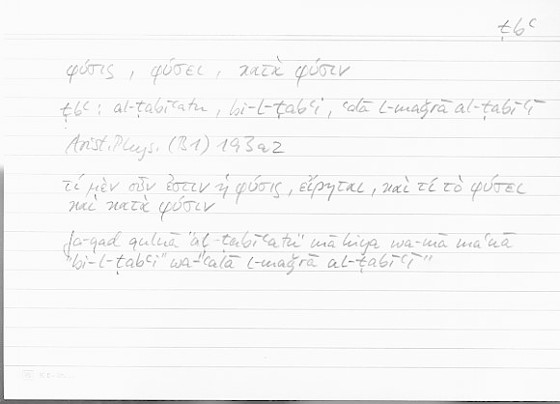 ṭbʿ
φύσις, φύσει, κατὰ φύσιν
ṭbʿ: al-ṭabīʿatu, bi-l-ṭabʿi, ʿalā l-maǧrā al-ṭabīʿī
Arist. Phys. (B1) 193a2
τί μὲν οὖν ἐστιν ἡ φύσις, εἴρηται, καὶ τί τὸ φύσει
καὶ κατὰ φύσιν
fa-qad qulnā "al-ṭabīʿatu" mā hiya wa-mā maʿnā
"bi-l-ṭabʿi" wa-"ʿalā l-maǧrā al-ṭabīʿī"